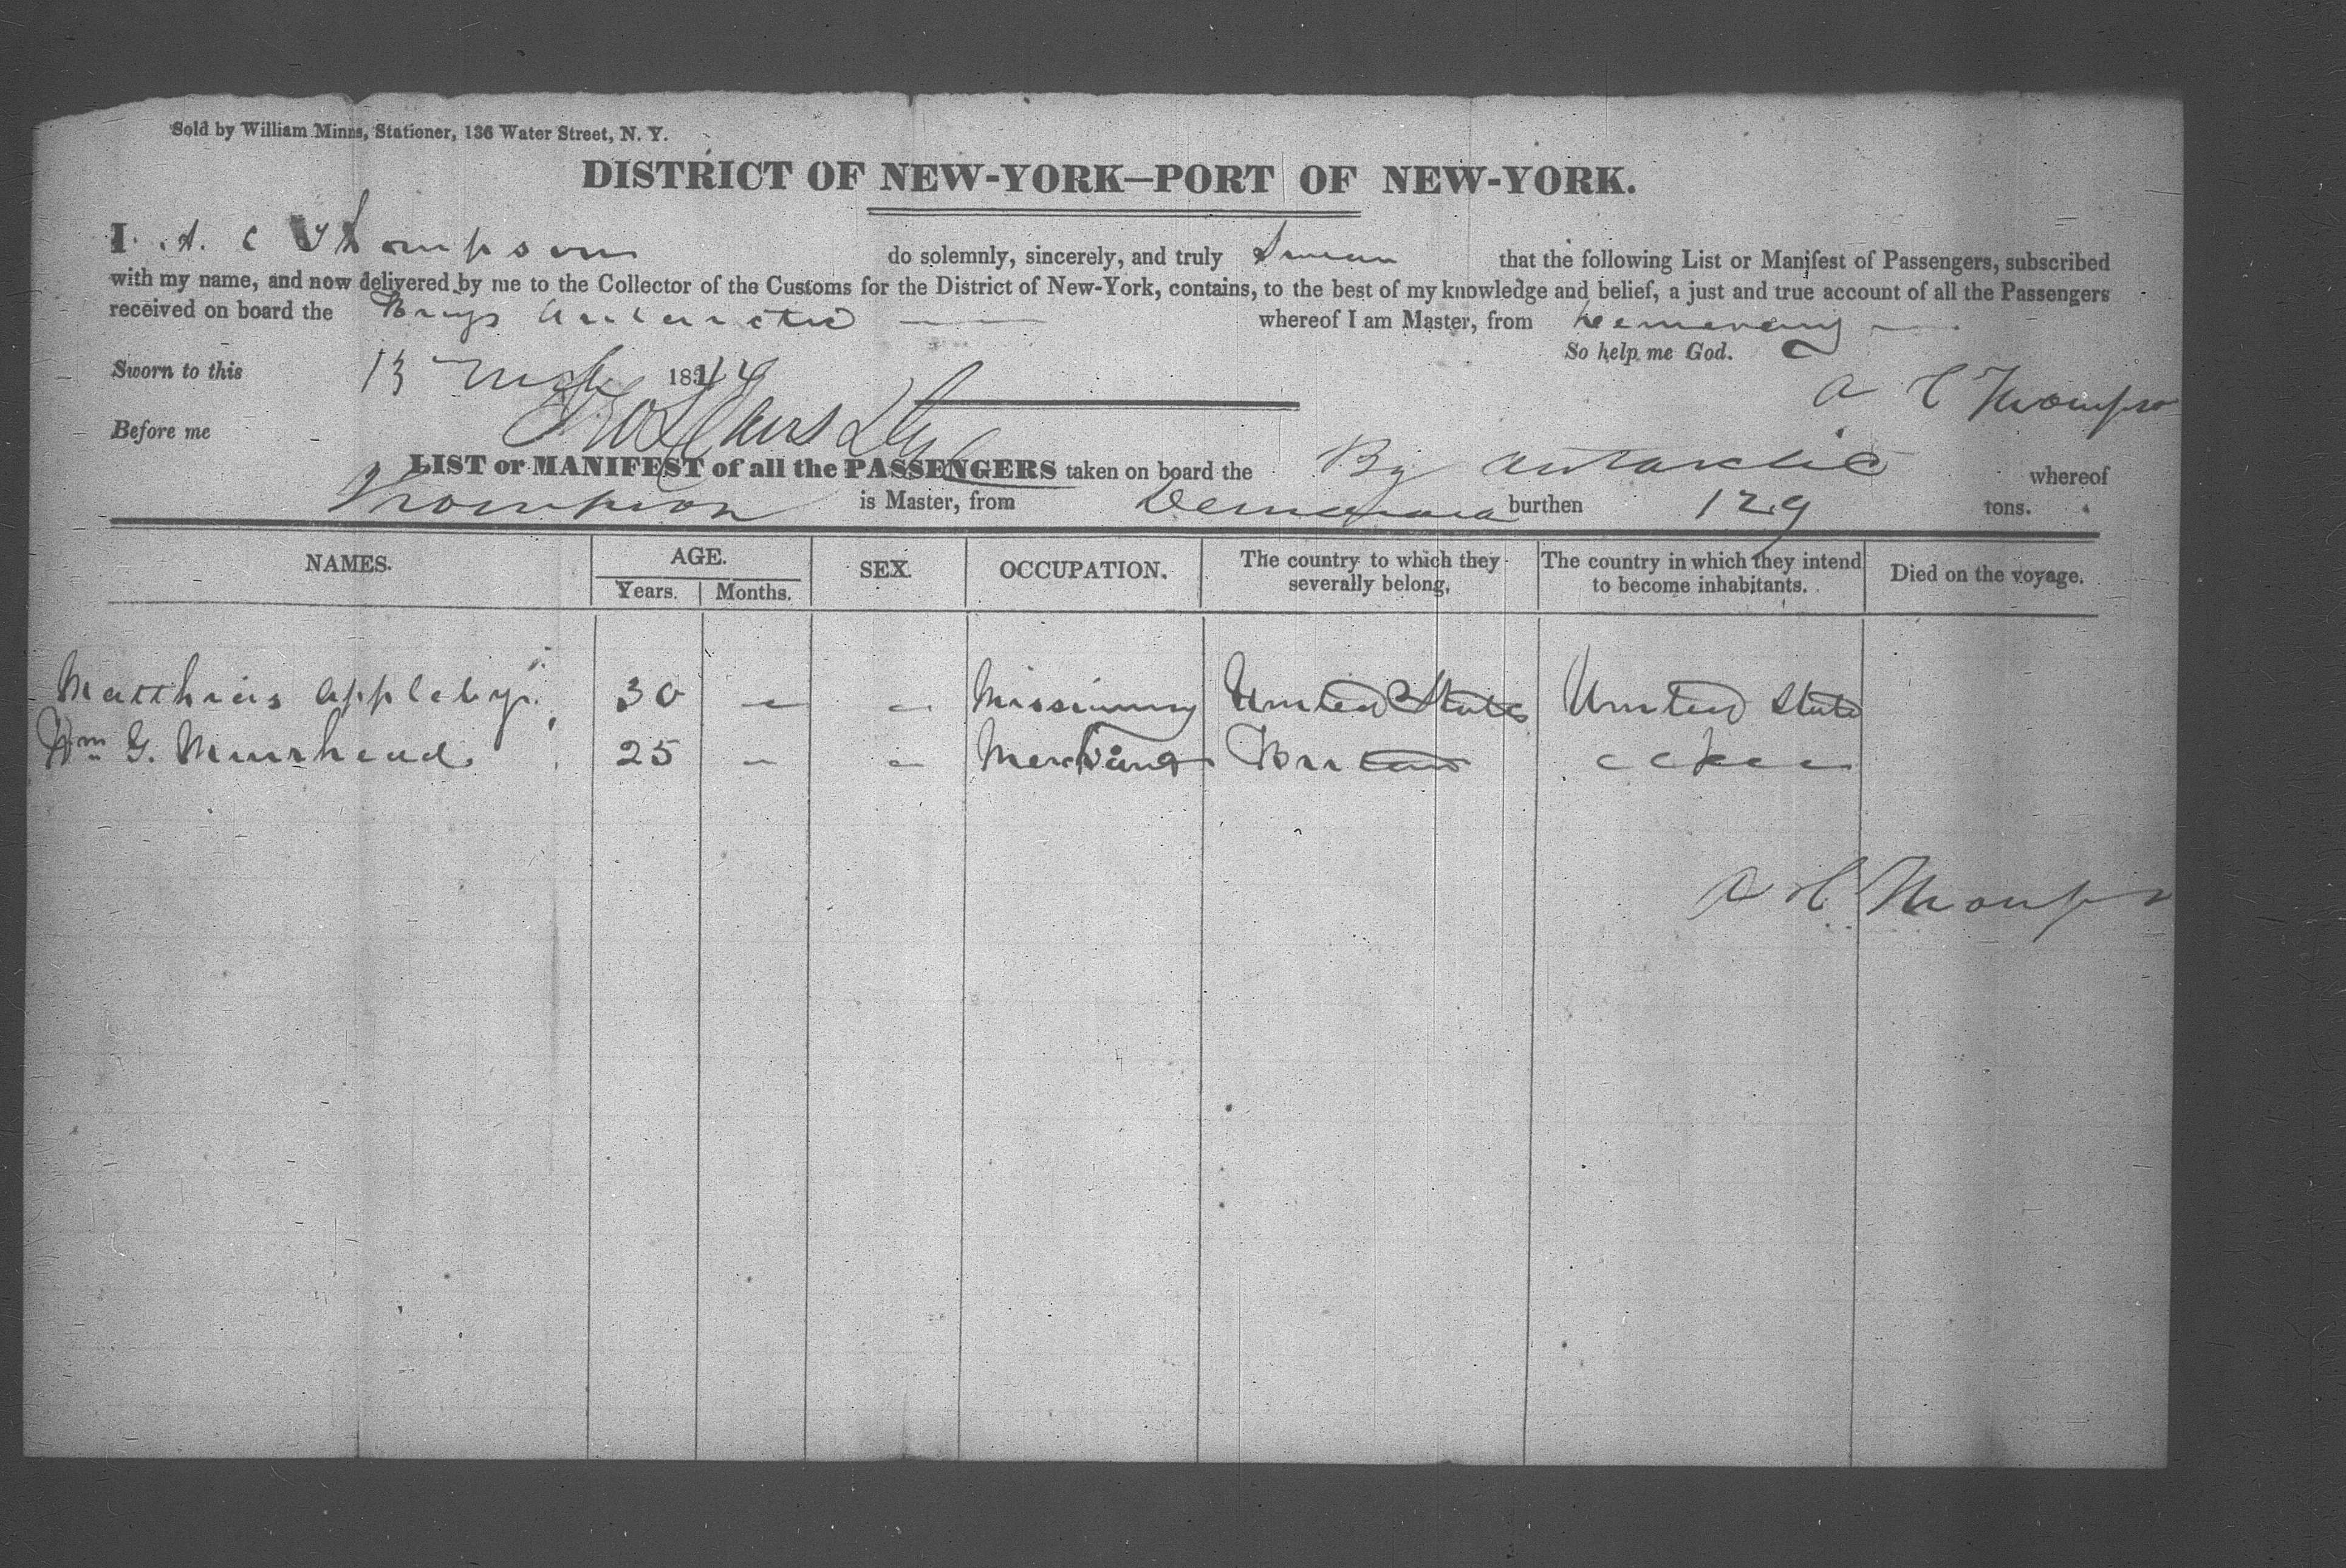 Sold by William Minns, Stationer, 136 Water Street, N. Y.
DISTRICT OF NEW-YORK—PORT OF NEW-YORK.
I A. C Thompson do solemnly, sincerely, and truly Swear that the following List or Manifest of Passengers, subscribed
with my name, and now delivered by me to the Collector of the Customs for the District of New-York, contains, to the best of my knowledge and belief, a just and true account of all the Passengers
received on board the Brig Antarctic whereof I am Master, from Demerary
So help me God.
Sworn to this 13 1844
A C Thompson
Before me
LIST or MANIFEST of all the PASSENGERS taken on board the Bg Antarctic whereof
Thompson is Master, from Demerara burthen 129 tons.
NAMES. AGE. SEX. OCCUPATION. The country to which they severally belong, The country in which they intend to become inhabitants. Died on the voyage.
Years. Months.
Matthias Appleby 30 - - Missionary United States United States
Wm G. Muirhead 25 - - Merchant Britain
A C Thompson